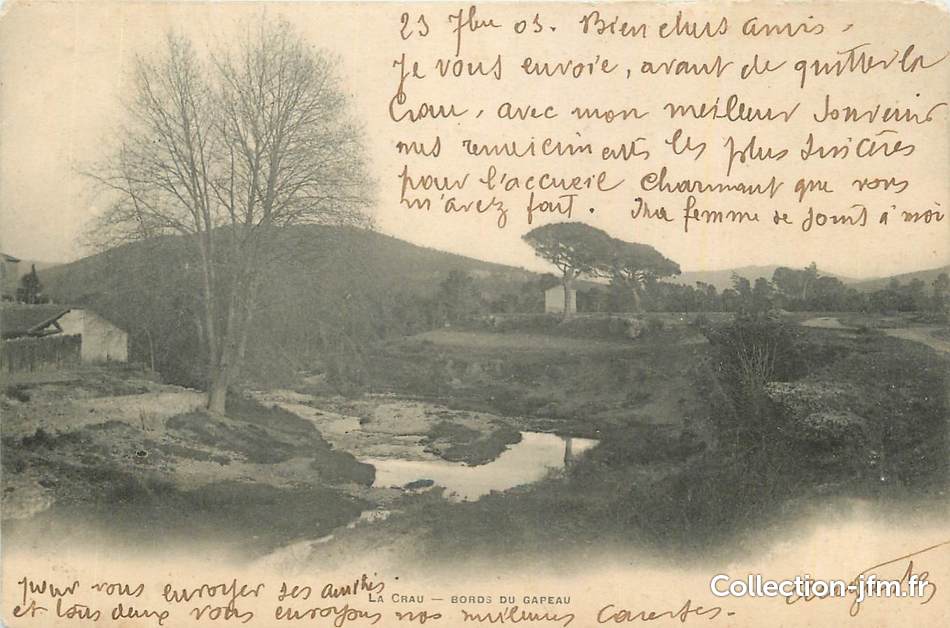 23 7bre 03. Bien chers amis,
Je vous envoie, avant de quitter la
Crau, avec mon meilleur souvenir
mes remerciments les plus sincères
pour l'accueil charmant que vous
m'avez fait. Ma femme se joint à moi
pour vous envoyer ses amitiés
et tous deux vous envoyons nos meilleures caresses.
LA CRAU — BORDS DU GAPEAU
Collection-jfm.fr